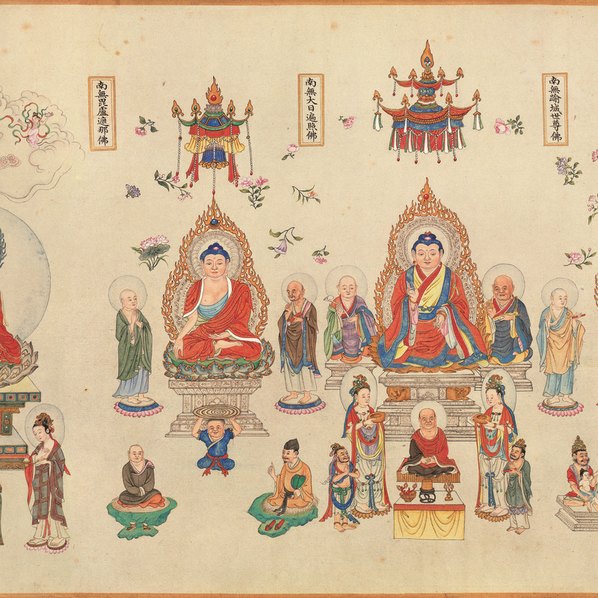 南無踰城世尊佛
南無大日遍照佛
南無毘盧遮那佛